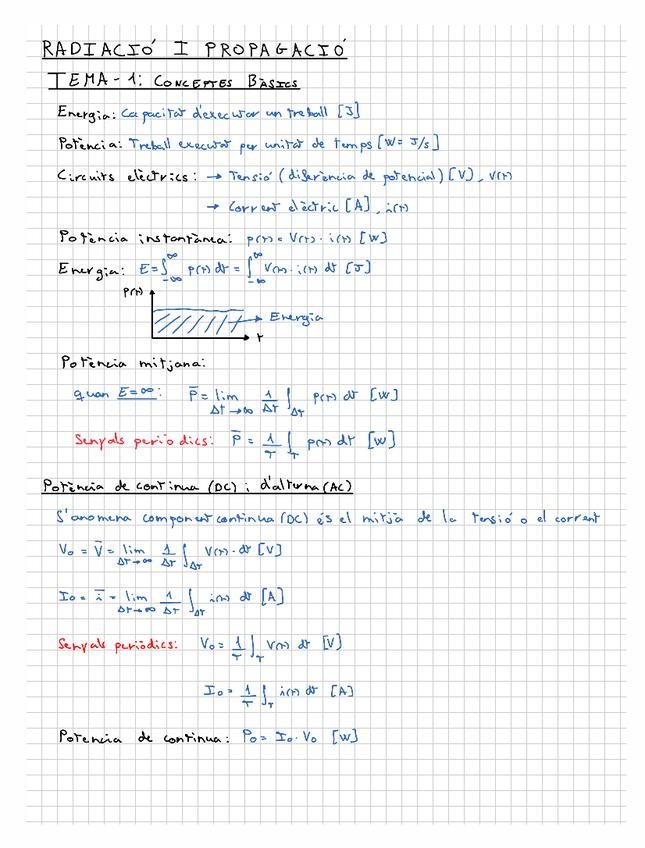 RADIACIÓ I PROPAGACIÓ
TEMA-1: CONCEPTES BÀSICS
Energia: Capacitat d'executar un treball [J]
Potència: Treball executat per unitat de temps [W = J/s]
Circuits elèctrics: → Tensió (diferència de potencial) [V], v(t)
→ Corrent elèctric [A], i(t)
Potència instantànea: p(t) = v(t) · i(t) [W]
Energia: E = ∫_{-∞}^{∞} p(t) dt = ∫_{-∞}^{∞} v(t) · i(t) dt [J]
p(t)
→ Energia
t
Potència mitjana:
quan E = ∞: P̅ = lim_{Δt→∞} 1/Δt ∫_{Δt} p(t) dt [W]
Senyals periòdics: P̅ = 1/T ∫_T p(t) dt [W]
Potència de contínua (DC) i d'alterna (AC)
S'anomena component contínua (DC) és el mitjà de la tensió o el corrent
V₀ = V̅ = lim_{Δt→∞} 1/Δt ∫_{Δt} v(t) · dt [V]
I₀ = i̅ = lim_{Δt→∞} 1/Δt ∫_{Δt} i(t) dt [A]
Senyals periòdics: V₀ = 1/T ∫_T v(t) dt [V]
I₀ = 1/T ∫_T i(t) dt [A]
Potencia de contínua: P₀ = I₀ · V₀ [W]